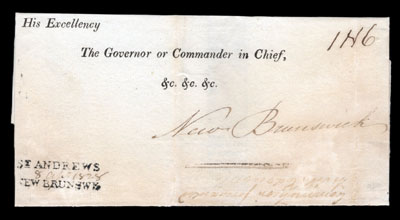 His Excellency
1N6
The Governor or Commander in Chief,
&c. &c. &c.
New Brunswick
ST ANDREWS
1828
NEW BRUNSWK